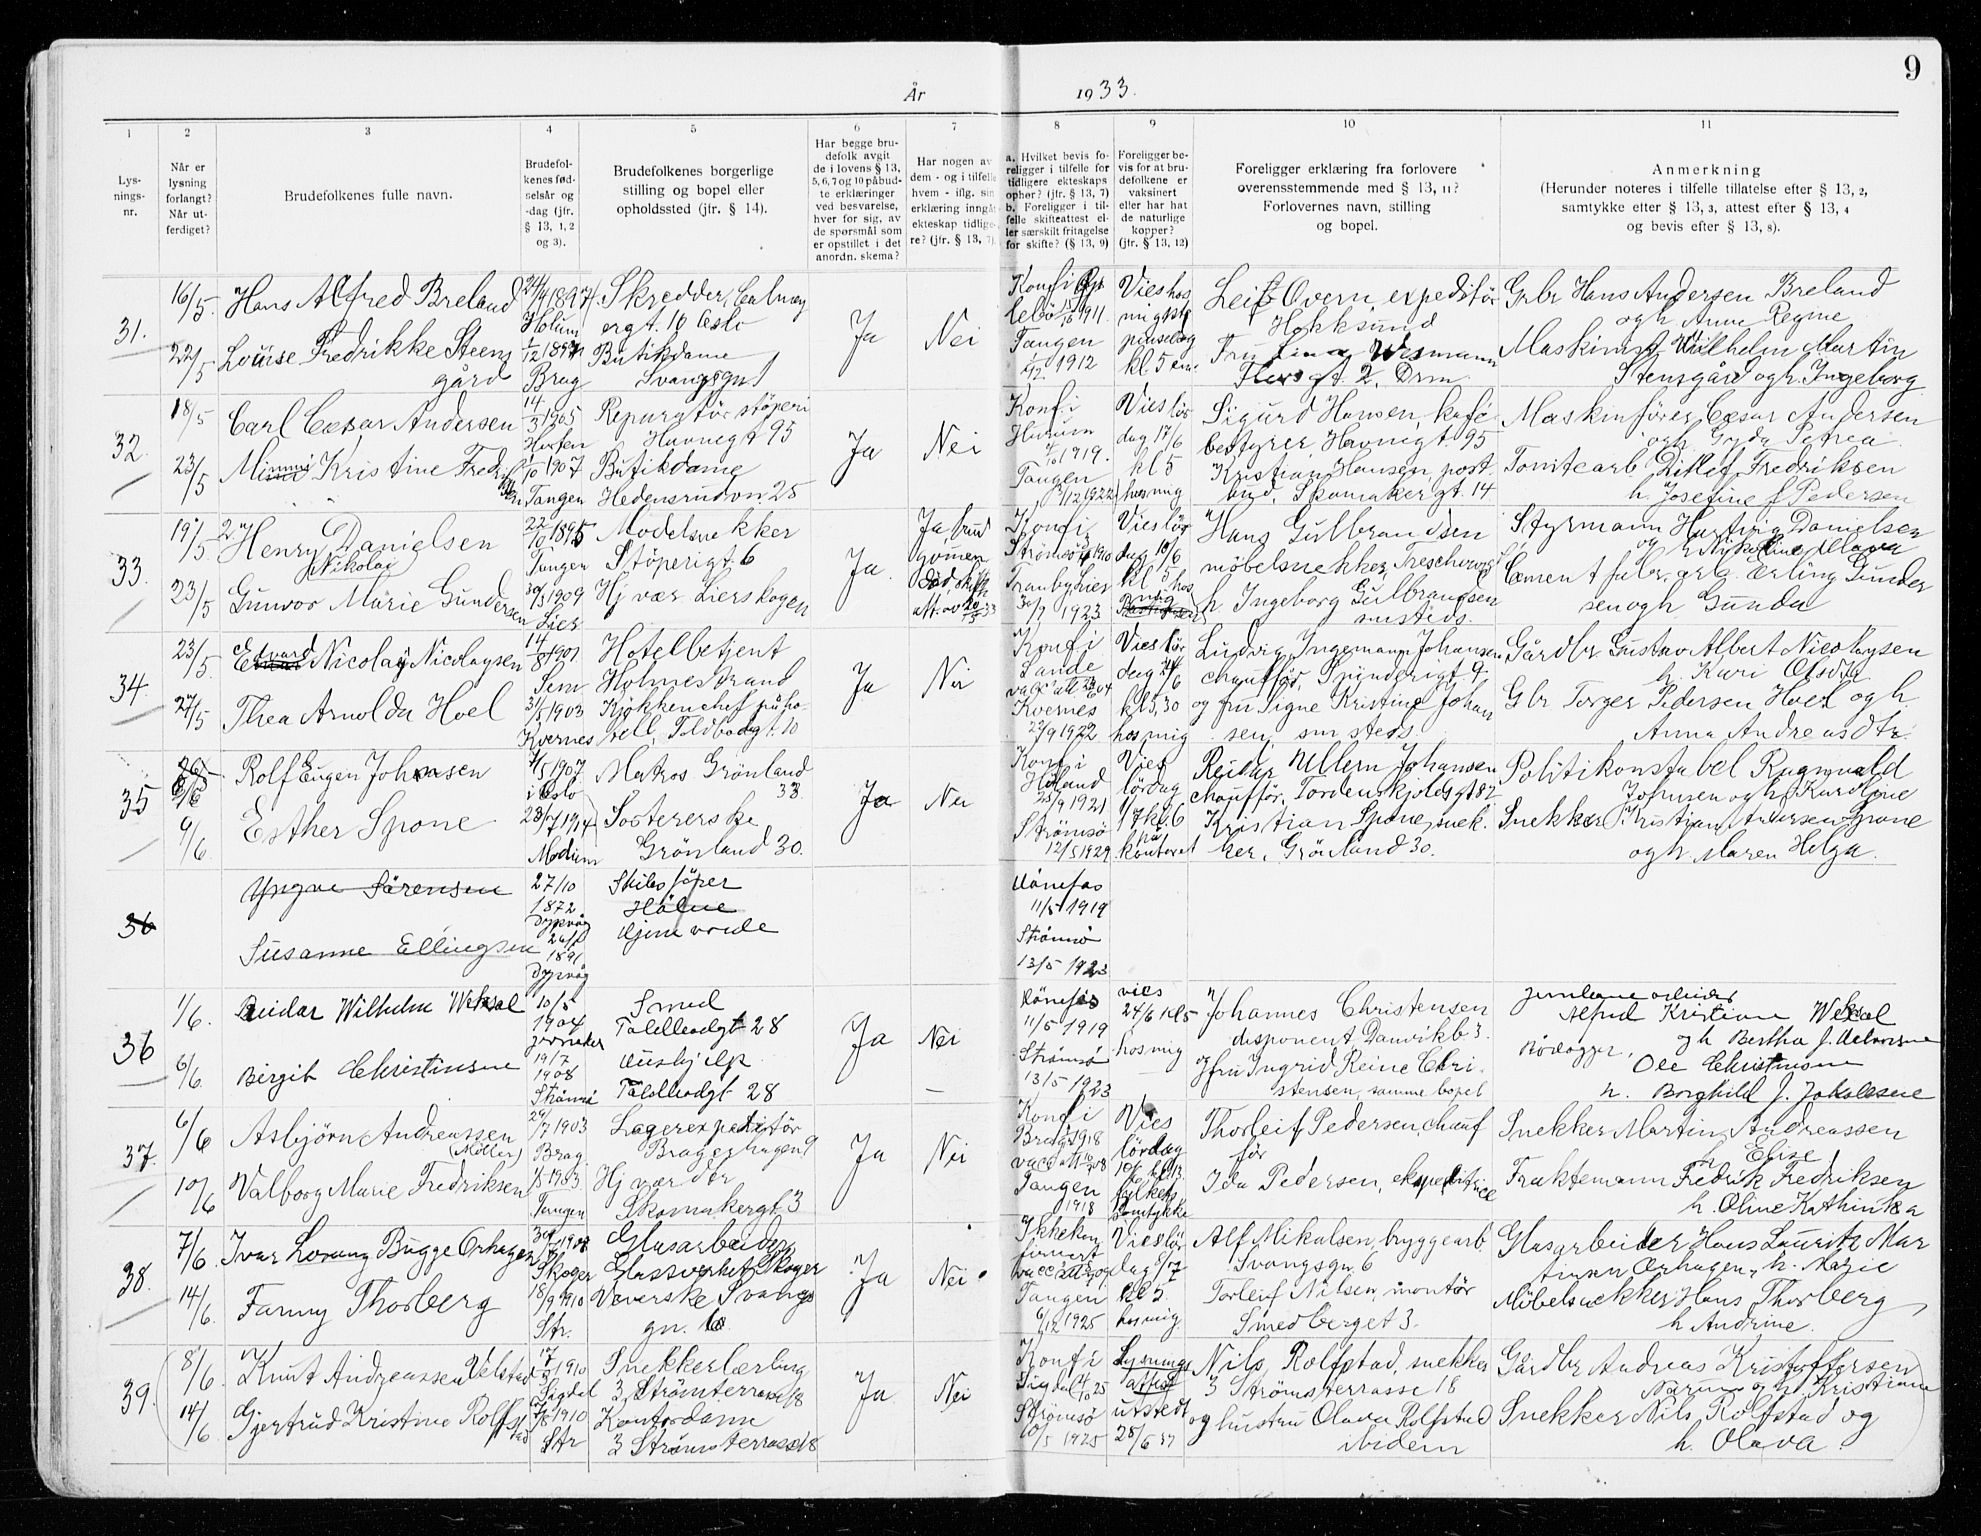 9
År 1933.
1 2 3 4 5 6 7 8 9 10 11
Lys-
nings-
nr.
Når er
lysning
forlangt?
Når ut-
ferdiget?
Brudefolkenes fulle navn.
Brudefol-
kenes fød-
selsår og
-dag (jfr.
§ 13, 1, 2
og 3).
Brudefolkenes borgerlige
stilling og bopel eller
opholdssted (jfr. § 14).
Har begge bru-
defolk avgit
de i lovens § 13,
5, 6, 7 og 10 påbud-
te erklæringer
ved besvarelse,
hver for sig, av
de spørsmål som
er opstillet i det
anordn. skema?
Har nogen av
dem - og i tilfelle
hvem - iflg. sin
erklæring inngåt
ekteskap tidlige-
re? (jfr. § 13, 7).
a. Hvilket bevis fo-
religger i tilfelle for
tidligere ekteskaps
ophør? (jfr. § 13, 7)
b. Foreligger i til-
felle skifteattest el-
ler særskilt fritagelse
for skifte? (§ 13, 9)
Foreligger be-
vis for at bru-
defolkene er
vaksinert
eller har hat
de naturlige
kopper?
(jfr. § 13, 12)
Foreligger erklæring fra forlovere
overensstemmende med § 13, 11?
Forlovernes navn, stilling
og bopel.
Anmerkning
(Herunder noteres i tilfelle tillatelse efter § 13, 2,
samtykke efter § 13, 3, attest efter § 13, 4
og bevis efter § 13, 8).
31.
16/5 Hans Alfred Breland
22/5 Louise Fredrikke Steens
gård
Holum
Brag
Skredder,
ergt. 10 Oslo
Butikdame
Ja
Nei
Konfi
1911.
Tangen
1/12 1912
Vies hos
mig
kl 5
Leif Overn expeditør
Hokksund
Fru
gt. 2, Drm.
Gbr Hans Andersen Breland
og h. Anne Regine
Maskinist Wilhelm Martin
Stensgård og h. Ingeborg
32
18/5 Carl Cæsar Andersen
23/5 Kristine Fredrik
sen
14/3 1905
1907
Tangen
Havnegt 95
Butikdame
Hedensrudvn 25
Ja
Nei
Konfi
Hurum
1919.
Tangen
1922
Vies lør
dag 17/6
kl 5
hos mig
Sigurd Hansen, kafé
bestyrer, Havnegt 95
Kristian Hansen, post
bud, Skomakergt. 14
Maskinfører Cæsar Andersen
og h. Gyda Petrea
Tomtearb. Ditlef Fredriksen
h. Josefine f Pedersen
33.
19/5 Henry Danielsen
(Nikolai)
23/5 Gunvor Marie Gundersen
22/10 1895
Tangen
1909
Lier
Modelsnekker
Støperigt. 6
Hj vær Lierskogen
Ja.
Ja, brud
gommen
Konfi
Strømsø
Tranby Lier
1923
Vies lør
dag 10/6
kl 5 hos
mig
Hans Gulbrandsen
møbelsnekker,
h. Ingeborg Gulbrandsen
smsteds.
Styrmann Hartvig Danielsen
og h Nikoline Olava
Cement fabr. arb. Erling Gunder
sen og h Gunda
34.
23/5 Edvard Nicolay Nicolaysen
27/5 Thea Arnolda Hoel
14/8 1901
Sem
31/5 1903
Kvernes
Hotelbetjent
Holmestrand
Kjøkkenchef på ho-
tell, Toldbodgt. 10
Ja
Nei
Konfi
Sande
Kvernes
1922
Vies lør
dag 24/6
kl 5,30
hos mig
Ludvig Ingemann Johansen
chauffør, Spinderigt 9.
og fru Signe Kristine Johan
sen, smsteds.
Gårdbr Gustav Albert Nicolaysen
h. Kari Olsdtr
Gbr Torger Pedersen Hoel og h.
Anna Andreasdtr.
35
Rolf Eugen Johnsen
9/6 Esther Spone
1907
i Oslo
23/7 1914
Modum
Matros Grønland
33
Sorterer ske
Grønland 30.
Ja
Nei
Konfi
Høland
1921
Strømsø
12/5 1929
Vies
lørdag
1/7 kl 6
på
kontoret
Reidar Ullern Johansen
chauffør, Tordenskjoldsgt 82
Kristian Spone, snek.
ker, Grønland 30.
Politikonstabel Ragnvald
Johnsen og h. Karoline
Snekker Kristian Andersen Spone
og h. Maren Helga.
36
Yngve Sørensen
Susanne Ellingsen
27/10
1872
Dypvåg
1891
Dypvåg
Hjemværde
Hønefos
11/5 1919
Strømsø
13/5 1923
36
1/6. Reidar Wilhelm Weksal
6/6. Birgit Christensen
10/5
1904
19/7
1908
Strømsø
Smed
Toldbodgt 28
Hushjelp
Toldbodgt 28
Ja
Nei
Hønefos
11/5 1919
Strømsø
13/5 1923
vies
24/6 kl 5
hos mig
Johannes Christensen
disponent, Danvikb 3.
og fru Ingrid Reine Chri-
stensen, samme bopel
Alfred Kristian Weksal
og h Bertha
Ole Christensen
h. Borghild J. Jakobsen
37.
6/6 Asbjørn Andreassen
(Møller)
10/6 Valborg Marie Fredriksen
1903
Brag.
Tangen
Lagerexpeditør
Bragerhagen 9
Hj værdør
Skomakergt. 3
Ja
Nei
Konfi
Brag 1918
Tangen
1918
Vies
lørdag
fylkets
samtykke
Thorleif Pedersen, chauf
før
Ida Pedersen, ekspeditrice
Snekker Martin Andreassen
h Elise
Fraktemann Fredrik Fredriksen
h. Oline Kathinka
38.
7/6 Ivar Bugge Orhagen
14/6. Fanny Thorberg
Skoger
18/9 1910
Str.
Glasarbeider
Glassverket Skoger
Veverske Svangs
gn. 6
Ja
Nei
Ikke kon
firmert
Tangen
6/12 1925
Vies lør
dag 1/7
kl 5.
hos mig.
Alf Mikalsen, bryggearb.
Svangsgn. 6
Torleif Nilsen, montør
Smedberget 3.
Glasarbeider Hans Lauritz Mar
tinsen Orhagen, h. Marie
Møbelsnekker Hans Thorberg
h Andrine.
39.
8/6 Knut Andreassen Velstad
14/6 Gjertrud Kristine Rolfstad
1910
Sigdal
1910
Str
Snekkerlærling
3 Strømsterrasse 18
Kontordame
3 Strømsterrasse 18
Ja
Nei
Konfi
Sigdal
Strømsø
1925
Lysnings
attest
utstedt
28/6 37
Nils Rolfstad, snekker
3 Strømsterrasse 18
og hustru Olava Rolfstad
ibidem
Gårdbr Andreas Kristoffersen
Narum og h. Kristiane
Snekker Nils Rolfstad og
h. Olava.